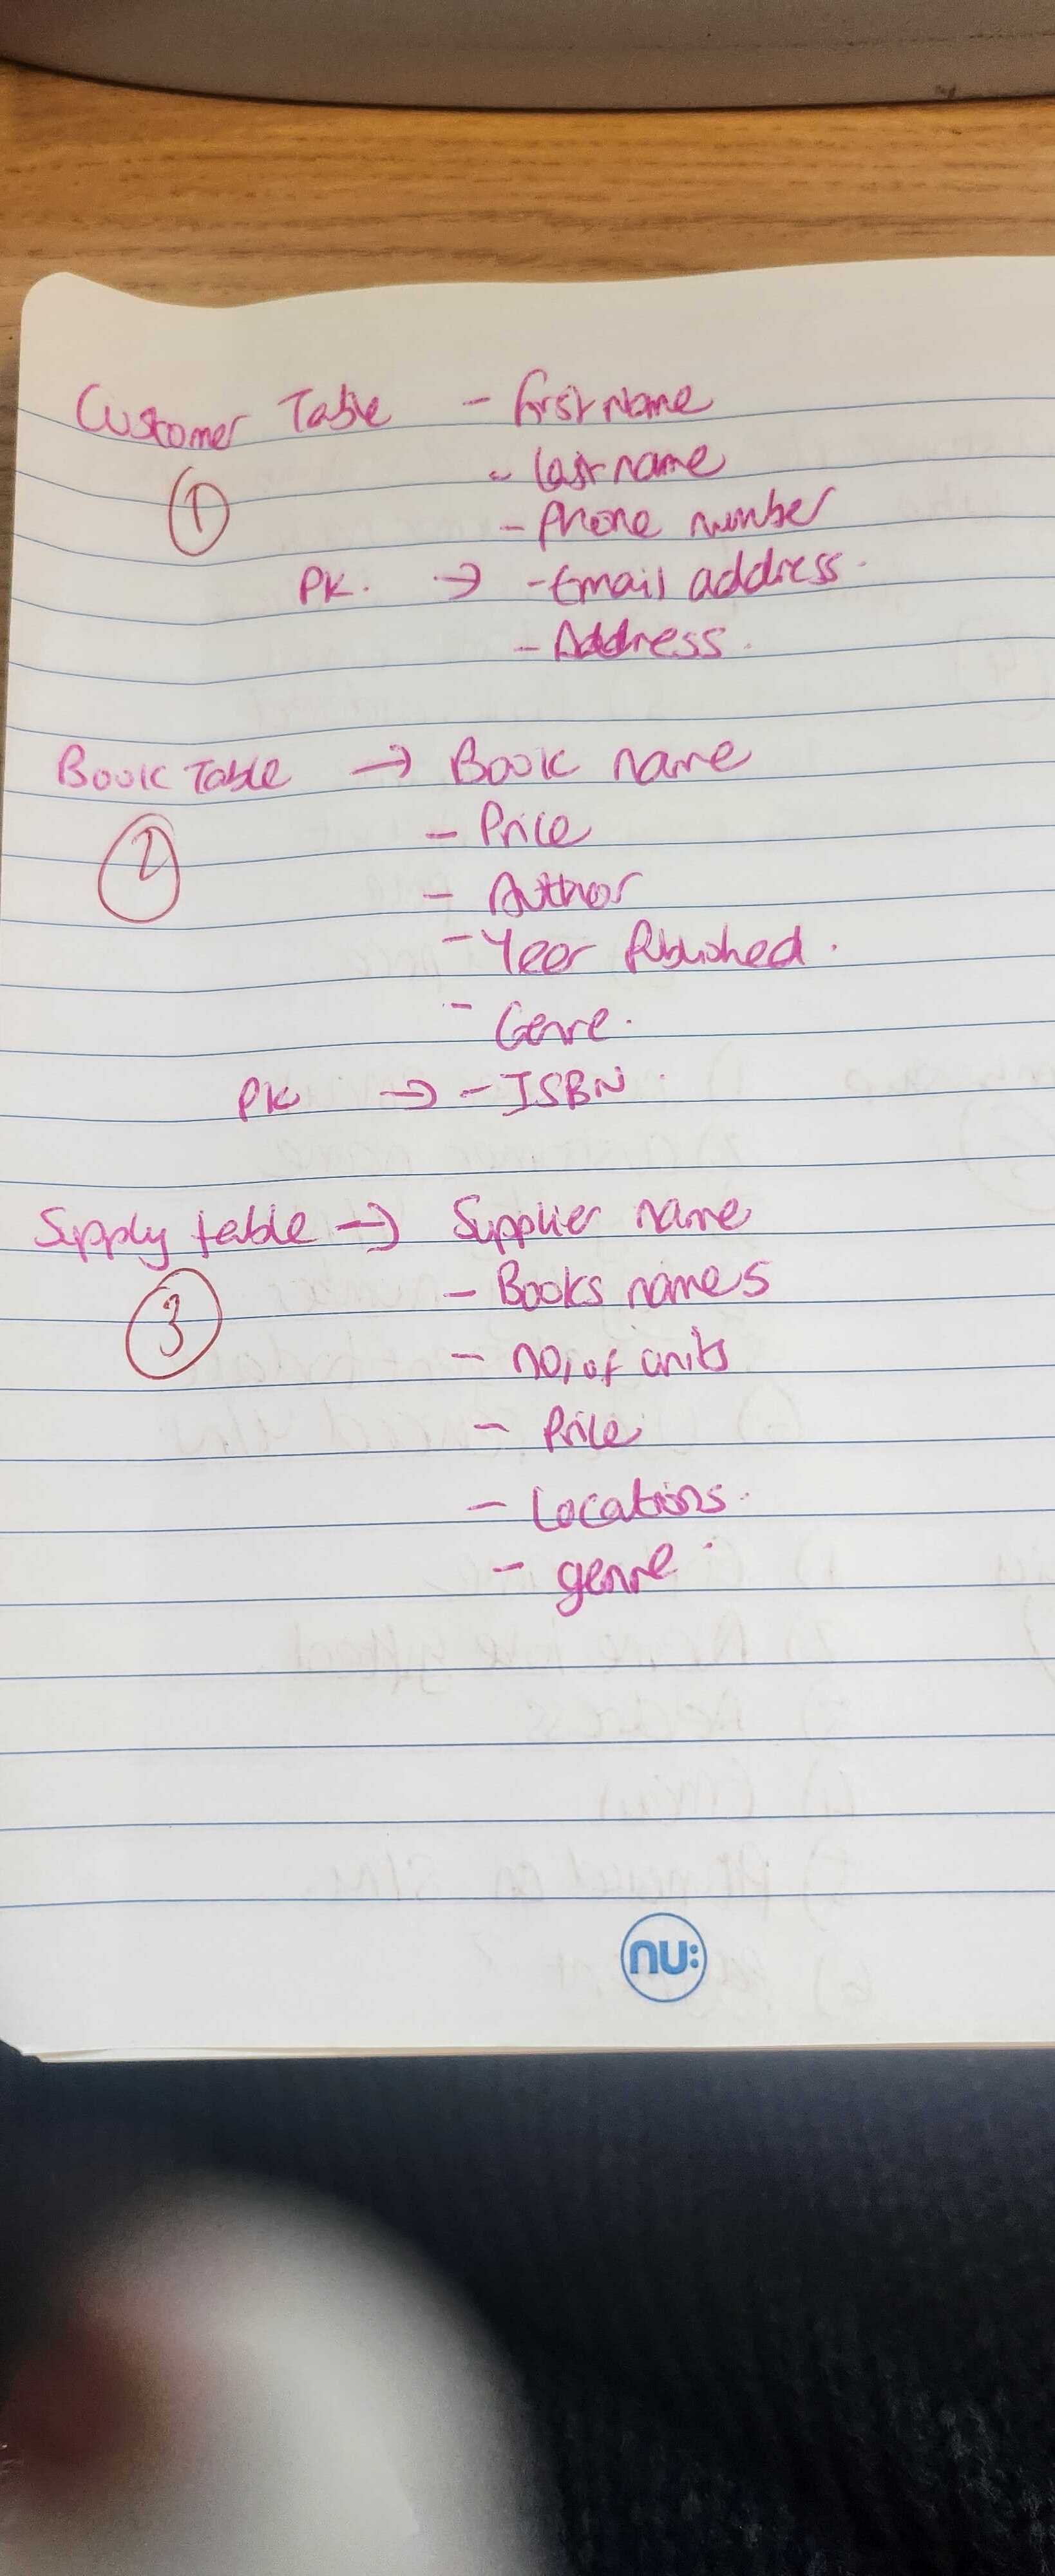 Customer Table - First name
- Last name
①
- Phone number
PK. → - Email address.
- Address.
Book Table → Book name
- Price
②
- Author
- Year Published.
- Genre.
PK → - ISBN.
Supply table → Supplier name
- Books names
③
- no, of units
- Price
- Locations.
- genre.
nu: